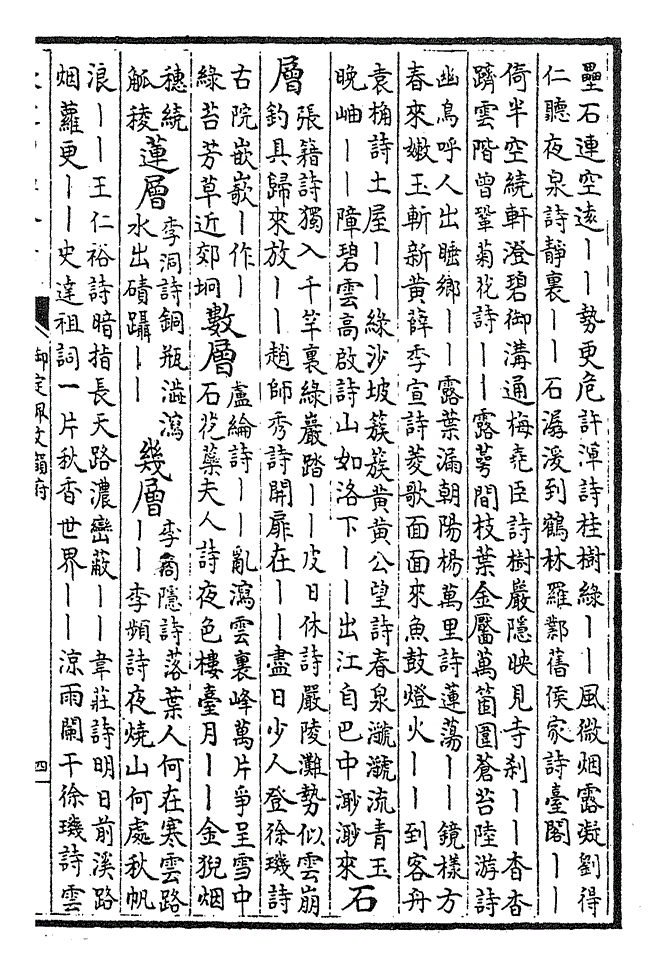 壘石連空遠丨丨勢更危許渾詩桂樹綠丨丨風微烟露凝劉得
仁聽夜泉詩靜裏丨丨石潺湲到鶴林羅鄴舊侯家詩臺閣丨丨
倚半空繞軒澄碧御溝通梅堯臣詩樹嚴隱映見寺刹丨丨杳杳
躋雲階曾鞏菊花詩丨丨露萼間枝葉金靨萬箇圍蒼苔陸游詩
幽鳥呼人出睡鄉丨丨露葉漏朝陽楊萬里詩蓮蕩丨丨鏡樣方
春來嫩玉斬新黃薛季宣詩菱歌面面來魚鼓燈火丨丨到客舟
袁桷詩土屋丨丨綠沙坡簇簇黃黃公望詩春泉㶁㶁流青玉
晚岫丨丨障碧雲高啟詩山如洛下丨丨出江自巴中渺渺來
石
層
張籍詩獨入千竿裏綠巖踏丨丨皮日休詩嚴陵灘勢似雲崩
釣具歸來放丨丨趙師秀詩開扉在丨丨盡日少人登徐璣詩
古院嵌嶔丨作丨
綠苔芳草近郊坰
數層
盧綸詩丨丨亂瀉雲裏峰萬片爭呈雪中
石花蘂夫人詩夜色樓臺月丨丨金猊烟
穗繞
觚稜
蓮層
李洞詩銅瓶澁瀉
水出磧躡丨丨
幾層
李商隱詩落葉人何在寒雲路
丨丨李頻詩夜燒山何處秋帆
浪丨丨王仁裕詩暗指長天路濃巒蔽丨丨韋莊詩明日前溪路
烟蘿更丨丨史達祖詞一片秋香世界丨丨涼雨闌干徐璣詩雲
御定佩文韻府
四